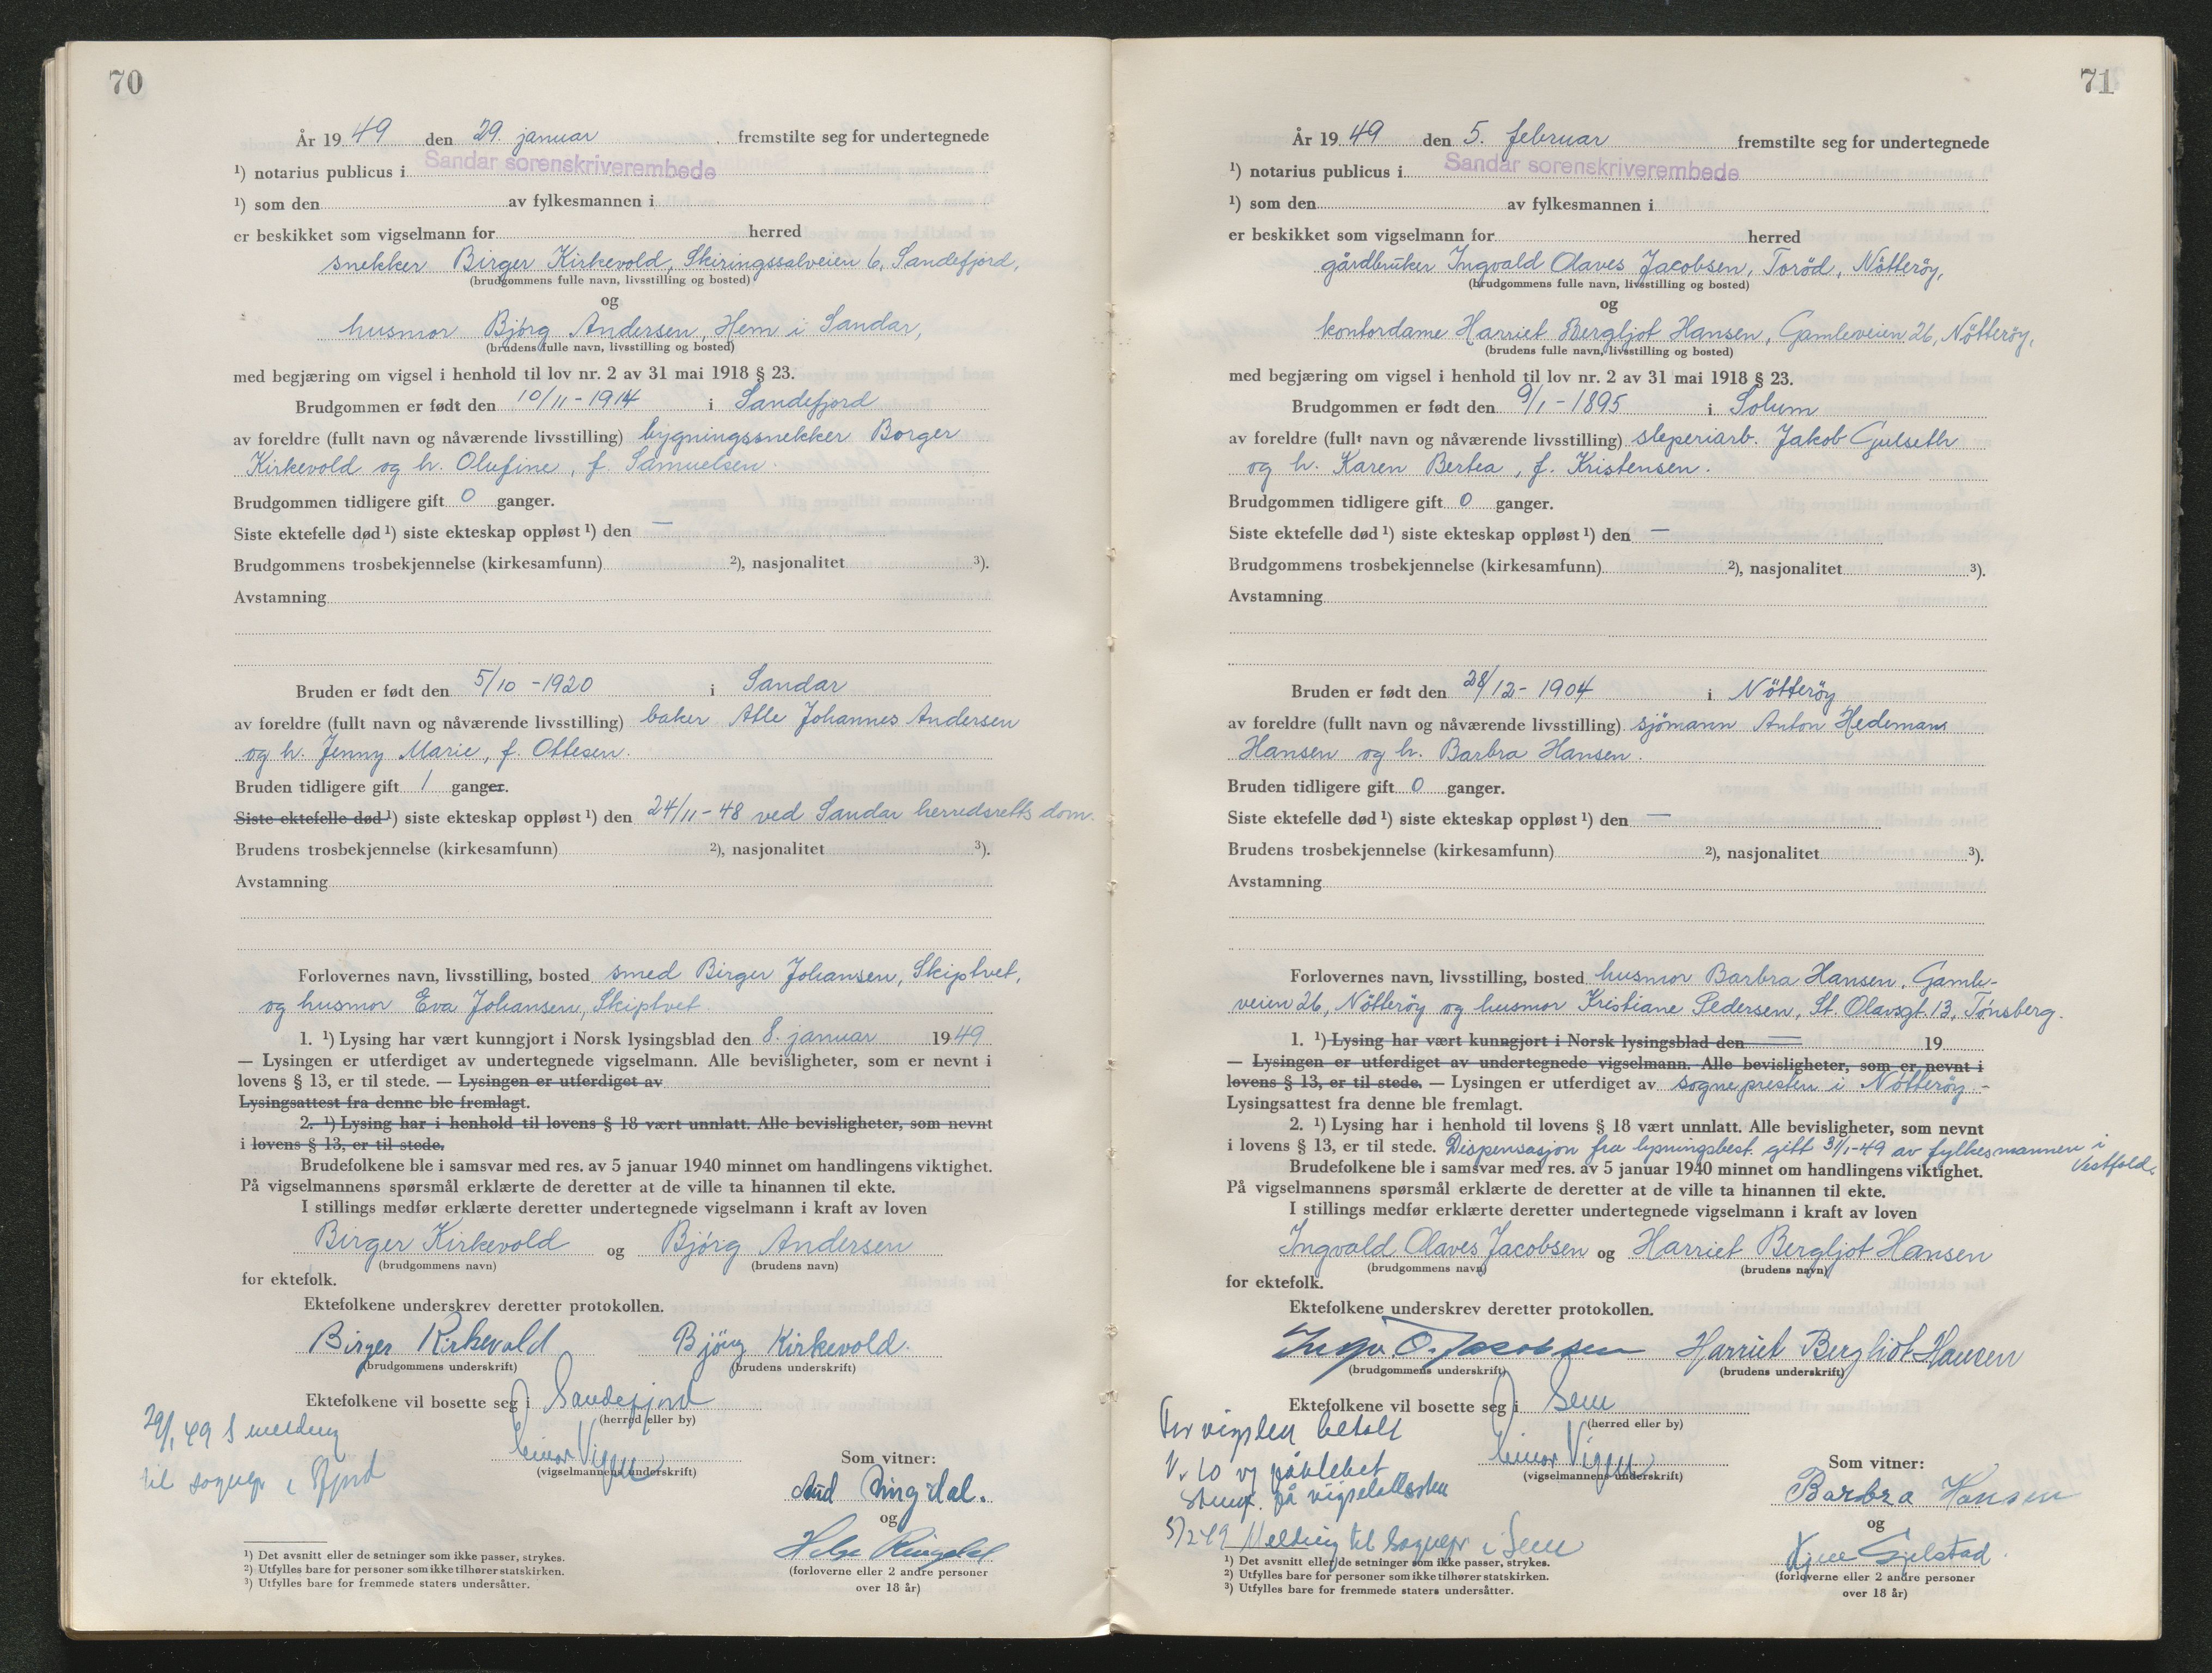 70
År 19 49 den 29. januar fremstilte seg for undertegnede
¹) notarius publicus i Sandar sorenskriverembede
¹) som den av fylkesmannen i
er beskikket som vigselmann for herred
snekker Birger Kirkevold, Skiringssalveien 6, Sandefjord,
(brudgommens fulle navn, livsstilling og bosted)
og
husmor Bjørg Andersen, Hem i Sandar,
(brudens fulle navn, livsstilling og bosted)
med begjæring om vigsel i henhold til lov nr. 2 av 31 mai 1918 § 23.
Brudgommen er født den 10/11-1914 i Sandefjord
av foreldre (fullt navn og nåværende livsstilling) bygningssnekker Borger
Kirkevold og h. Olufine, f. Samuelsen.
Brudgommen tidligere gift 0 ganger.
Siste ektefelle død ¹) siste ekteskap oppløst ¹) den —
Brudgommens trosbekjennelse (kirkesamfunn) ²), nasjonalitet ³).
Avstamning
Bruden er født den 5/10-1920 i Sandar
av foreldre (fullt navn og nåværende livsstilling) baker Atle Johannes Andersen
og h. Jenny Marie, f. Ottesen.
Bruden tidligere gift 1 ganger.
Siste ektefelle død ¹) siste ekteskap oppløst ¹) den 24/11-48 ved Sandar herredsretts dom.
Brudens trosbekjennelse (kirkesamfunn) ²), nasjonalitet ³).
Avstamning
Forlovernes navn, livsstilling, bosted smed Birger Johansen, Skiptvet,
og husmor Eva Johansen, Skiptvet.
1. ¹) Lysing har vært kunngjort i Norsk lysingsblad den 8. januar 19 49
— Lysingen er utferdiget av undertegnede vigselmann. Alle bevisligheter, som er nevnt i
lovens § 13, er til stede. — Lysingen er utferdiget av
Lysingsattest fra denne ble fremlagt.
2. ¹) Lysing har i henhold til lovens § 18 vært unnlatt. Alle bevisligheter, som nevnt
i lovens § 13, er til stede.
Brudefolkene ble i samsvar med res. av 5 januar 1940 minnet om handlingens viktighet.
På vigselmannens spørsmål erklærte de deretter at de ville ta hinannen til ekte.
I stillings medfør erklærte deretter undertegnede vigselmann i kraft av loven
Birger Kirkevold og Bjørg Andersen
(brudgommens navn) (brudens navn)
for ektefolk.
Ektefolkene underskrev deretter protokollen.
Birger Kirkevold Bjørg Kirkevold.
(brudgommens underskrift) (brudens underskrift)
Ektefolkene vil bosette seg i Sandefjord
(herred eller by)
29/1 49 S melding
til sognepr i Sfjord
Einar Viggen
(vigselmannens underskrift)
Som vitner:
Aud Ringdal.
og
Helge Ringdal
(forloverne eller 2 andre personer
over 18 år)
¹) Det avsnitt eller de setninger som ikke passer, strykes.
²) Utfylles bare for personer som ikke tilhører statskirken.
³) Utfylles bare for fremmede staters undersåtter.
71
År 19 49 den 5. februar fremstilte seg for undertegnede
¹) notarius publicus i Sandar sorenskriverembede
¹) som den av fylkesmannen i
er beskikket som vigselmann for herred
gårdbruker Ingvald Olaves Jacobsen, Torød, Nøtterøy,
(brudgommens fulle navn, livsstilling og bosted)
og
kontordame Harriet Bergljot Hansen, Gamleveien 26, Nøtterøy,
(brudens fulle navn, livsstilling og bosted)
med begjæring om vigsel i henhold til lov nr. 2 av 31 mai 1918 § 23.
Brudgommen er født den 9/1-1895 i Solum
av foreldre (fullt navn og nåværende livsstilling) sleperiarb. Jakob Gulseth
og h. Karen Bertea, f. Kristensen.
Brudgommen tidligere gift 0 ganger.
Siste ektefelle død ¹) siste ekteskap oppløst ¹) den —
Brudgommens trosbekjennelse (kirkesamfunn) ²), nasjonalitet ³).
Avstamning
Bruden er født den 28/12-1904 i Nøtterøy
av foreldre (fullt navn og nåværende livsstilling) sjømann Anton Hedeman
Hansen og h. Barbra Hansen.
Bruden tidligere gift 0 ganger.
Siste ektefelle død ¹) siste ekteskap oppløst ¹) den —
Brudens trosbekjennelse (kirkesamfunn) ²), nasjonalitet ³).
Avstamning
Forlovernes navn, livsstilling, bosted husmor Barbra Hansen, Gamle-
veien 26, Nøtterøy og husmor Kristiane Pedersen, St. Olavsgt. 13, Tønsberg.
1. ¹) Lysing har vært kunngjort i Norsk lysingsblad den — 19
— Lysingen er utferdiget av undertegnede vigselmann. Alle bevisligheter, som er nevnt i
lovens § 13, er til stede. — Lysingen er utferdiget av sognepresten i Nøtterøy.-
Lysingsattest fra denne ble fremlagt.
2. ¹) Lysing har i henhold til lovens § 18 vært unnlatt. Alle bevisligheter, som nevnt
i lovens § 13, er til stede. Dispensasjon fra lysningsbest. gitt 31/1-49 av fylkesmannen i
Vestfold.
Brudefolkene ble i samsvar med res. av 5 januar 1940 minnet om handlingens viktighet.
På vigselmannens spørsmål erklærte de deretter at de ville ta hinannen til ekte.
I stillings medfør erklærte deretter undertegnede vigselmann i kraft av loven
Ingvald Olaves Jacobsen og Harriet Bergljot Hansen
(brudgommens navn) (brudens navn)
for ektefolk.
Ektefolkene underskrev deretter protokollen.
Ingv. O. Jacobsen Harriet Bergliot Hansen
(brudgommens underskrift) (brudens underskrift)
Ektefolkene vil bosette seg i Sem
(herred eller by)
For vigslen betalt
og påklebet
på vigselattesten
5/2 49 Melding til sognepr i Sem
Einar Viggen
(vigselmannens underskrift)
Som vitner:
Barbra Hansen
og
Gjelstad
(forloverne eller 2 andre personer
over 18 år)
¹) Det avsnitt eller de setninger som ikke passer, strykes.
²) Utfylles bare for personer som ikke tilhører statskirken.
³) Utfylles bare for fremmede staters undersåtter.